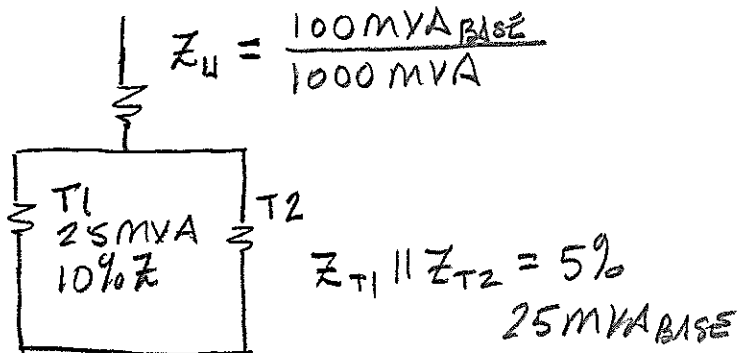 Z_U = 100MVA_BASE
1000 MVA
T1
25MVA
10%Z
T2
Z_T1 || Z_T2 = 5%
25MVA_BASE